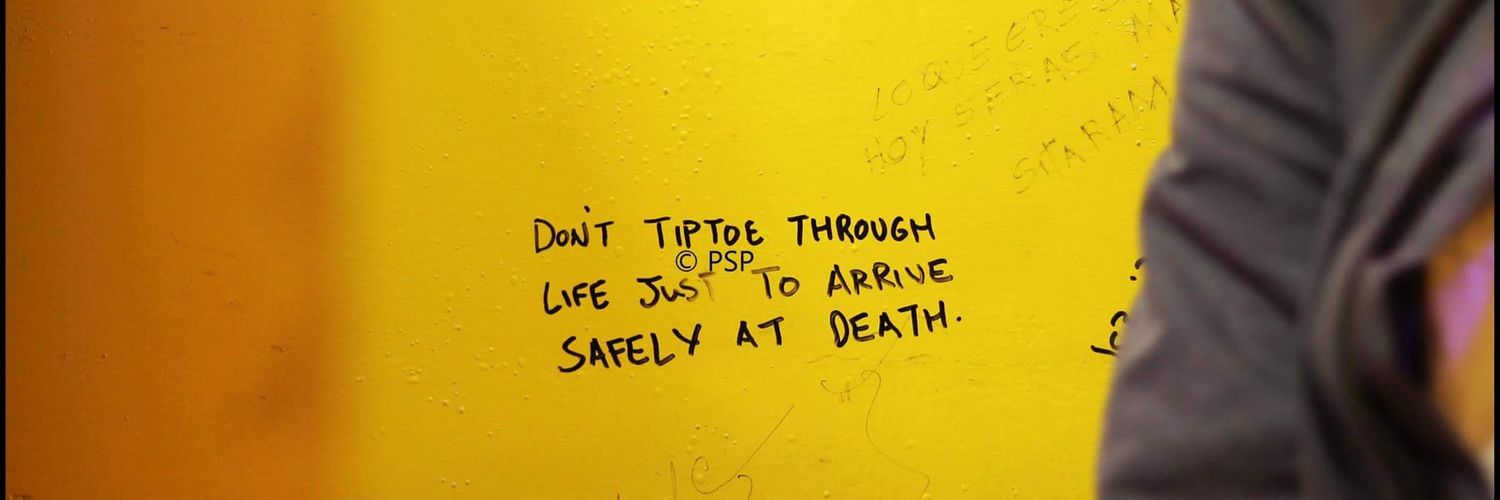 LO QUE ERES
HOY SERAS
DON'T TIPTOE THROUGH
© PSP
LIFE JUST TO ARRIVE
SAFELY AT DEATH.